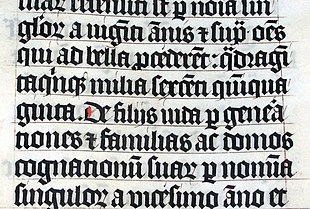 suar recensiti st p noīa sin
głor a uigīti ānis ⁊ sup̄ oēs
qui ad bella p̱cederēt: q̄dragī
ta q̇nq̇ milia sexcēti quīqua
ginta. De filiis iuda p̱ genera
tiones ⁊ familias ac domos
cognationū suar p̱ nomina
singulor a uicesimo āno et